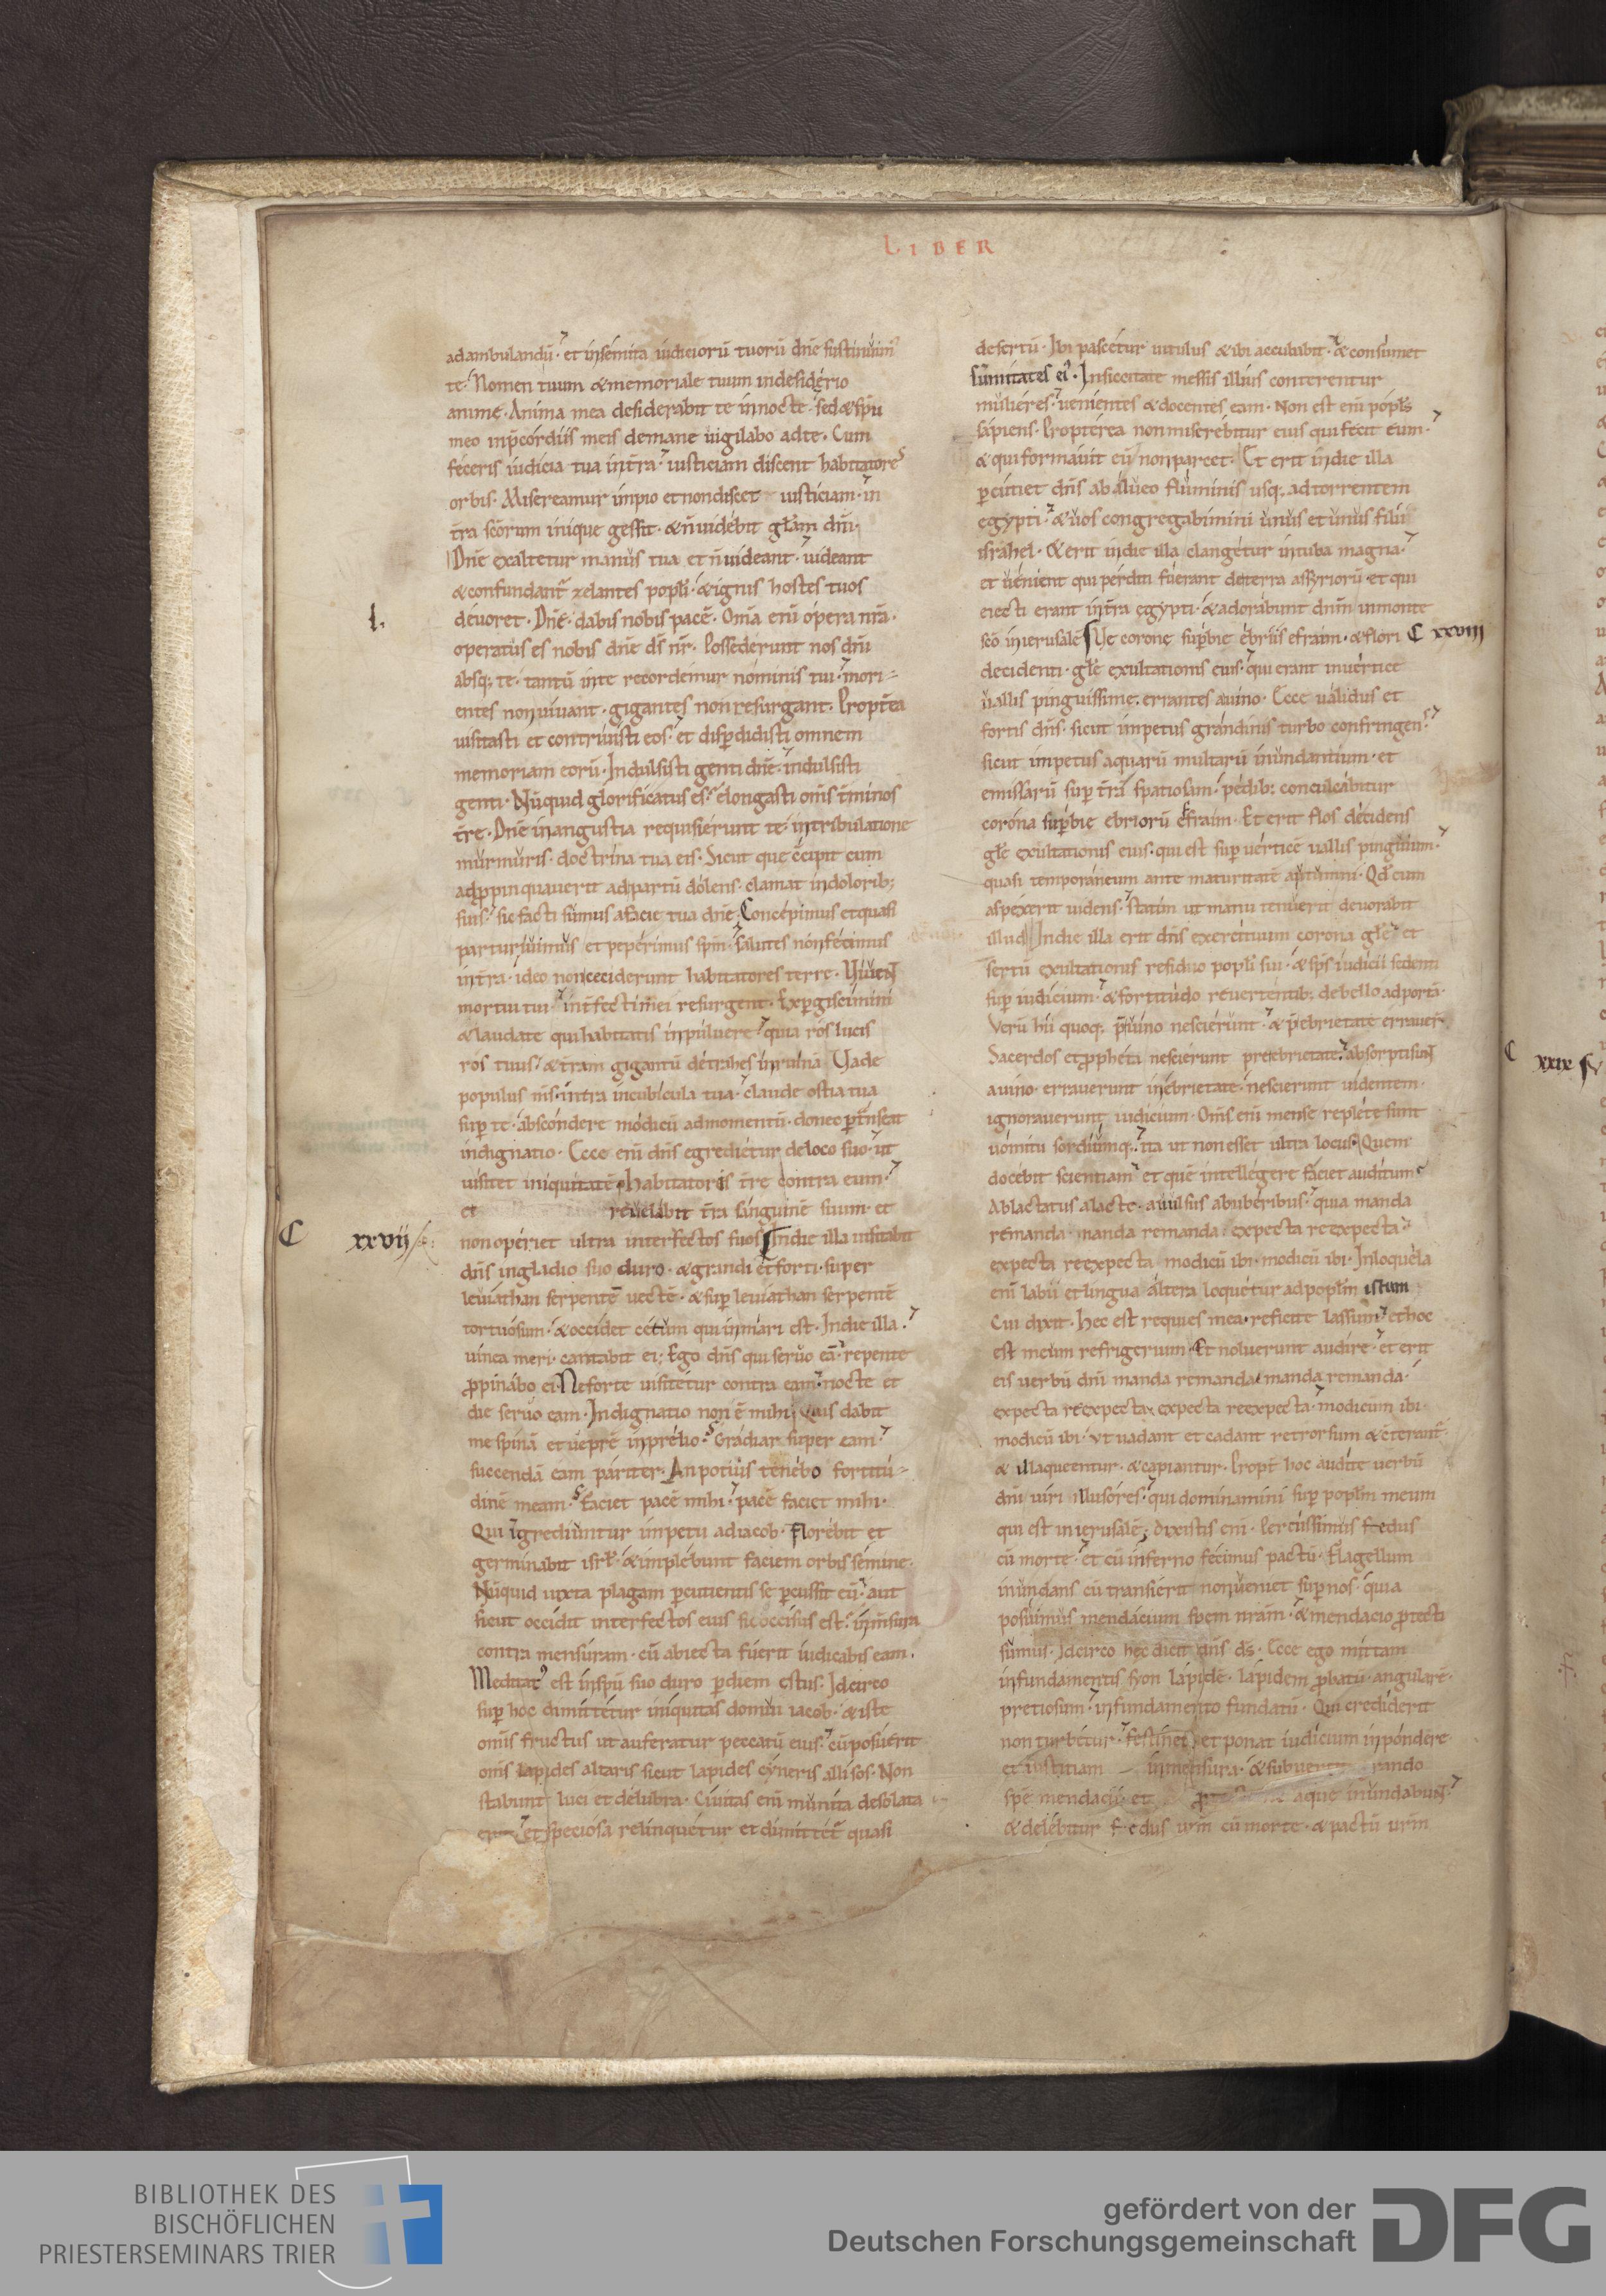 LIBER
ad ambulandū· et in semita iudiciorū tuorū dn̄e sustinuim᷒
te· Nomen tuum & memoriale tuum indesiderio
anime· Anima mea desiderabit te in nocte· sed & sp̄u
meo inp̄cordiis meis demane uigilabo adte· Cum
feceris iudicia tua in tr̄a· iusticiam discent habitatores
orbis· Misereamur impio et non discet iusticiam· in
tr̄a sc̄orum inique gessit· & n̄ uidebit gl̄am dn̄i·
Dn̄e exaltetur manus tua et n̄ uideant· uideant
& confundant᷒ zelantes popl̄i· & ignis hostes tuos
l.
deuoret· Dn̄e dabis nobis pacē· Om̄a enī opera nr̄a·
operatus es nobis dn̄e ds̄ nr̄· Possederunt nos dn̄i
absq; te· tantū inte recordemur nominis tui· mori-
entes non uiuant· gigantes non resurgant· Propt̄ea
uisitasti et contriuisti eos· et disp̄didisti omnem
memoriam eorū· Indulsisti genti dn̄e· indulsisti
genti· Nūquid glorificatus es· elongasti om̄s t̄minos
tr̄e· Dn̄e in angustia requisierunt te· intribulatione
murmuris· doctrina tua eis· Sicut que c̄cipit cum
adp̄pinquauerit ad partū dolens· clamat indolorib;
suis· sic facti sumus afacie tua dn̄e· Concepimus et quasi
parturiuimus et peperimus sp̄m· salutes non fecimus
in tr̄a· ideo non ceciderunt habitatores terre· Uiuent
mortui tui· int̄fecti mei resurgent· Exp̄giscimini
& laudate qui habitatis inpuluere· quia ros lucis
ros tuus· & tr̄am gigantū detrahes inruinā Uade
populus m̄s· intra incubicula tua· claude ostia tua
sup̄ te· abscondere modicū admomentū· donec p̄t̄nseat
indignatio· Ecce enī dn̄s egredietur deloco suo· ut
uisitet iniquitatē habitatoris tr̄e contra eum·
et reuelabit tr̄a sanguinē suum· et
C xxvij
non operiet ultra interfectos suos Indie illa uisitabit
dn̄s ingladio suo duro· & grandi et forti· super
leuiathan serpentē uectē· & sup̄ leuiathan serpentē
tortuosum· & occidet cetum qui inmari est· Indie illa·
uinea meri· cantabit ei; Ego dn̄s qui seruo eā· repente
p̄pinabo ei· Ne forte uisitetur contra eam· nocte et
die seruo eam· Indignatio non ē mihi; Quis dabit
me spinā et ueprē inprelio· Gradiar super eam·
succendā eam pariter· An potius tenebo fortitu-
dinē meam· Faciet pacē mihi· pacē faciet mihi·
Qui igrediuntur impetu ad iacob· Florebit et
germinabit isrl̄· & implebunt faciem orbis semine·
Nūquid iuxta plagam p̄cutientis se p̄cussit eū· aut
sicut occidit interfectos eius sic occisus est· in m̄sura
contra mensuram· cū abiecta fuerit iudicabis eam·
Meditat᷒ est inspū suo duro p̄ diem estus· Idcirco
sup̄ hoc dimittetur iniquitas domui iacob· & iste
om̄is fructus ut auferatur peccatū eius· cū posuerit
om̄s lapides altaris sicut lapides cyneris allisos· Non
stabunt luci et delubra· Ciuitas enī munita desolata
erit et speciosa relinquetur et dimittet᷒ quasi
desertū· Ibi pascetur uitulus & ibi accubabit· & consumet
sum̄itates ei᷒· Insiccitate messis illius conterentur
mulieres· uenientes & docentes eam· Non est enī popl̄s
sapiens· Propterea non miserebitur eius qui fecit eum·
& qui formauit eū non parcet· Et erit indie illa
p̄cutiet dn̄s ab alueo fluminis usq; ad torrentem
egypti· & uos congregabimini unus et unus filii
israhel· & erit indie illa clangetur intuba magna·
et uenient qui perditi fuerant deterra assyriorū· et qui
eiecti erant in tr̄a egypti· & adorabunt dn̄m inmonte
sc̄o inierusalē Ue corone sup̄bie ebriis efraim· & flori
C xxviij
decidenti· gl̄e exultationis eius· qui erant inuertice
uallis pinguissime· errantes auino· Ecce ualidus et
fortis dn̄s· sicut impetus grandinis turbo confringens·
sicut impetus aquarū multarū inundantium· et
emissarū sup̄ tr̄ā spatiosam· pedib; conculcabitur
corona sup̄bie ebriorū efraim· Et erit flos decidens
gl̄e exultationis eius· qui est sup̄ uerticē uallis pinguium·
quasi temporaneum ante maturitatē autumni· Qd̄ cum
aspexerit uidens· statim ut manu tenuerit deuorabit
illud Indie illa erit dn̄s exercituum corona gl̄e et
sertū exultationis residuo popl̄i sui· & sp̄s iudicii sedenti
sup̄ iudicium· & fortitudo reuertentib; debello ad portā·
Verū hii quoq; p̄uino nescierunt· & p̄ebrietate errauer̄·
Sacerdos et ppheta nescierunt pre ebrietate· absorpti sunt
C xxix
auino· errauerunt inebrietate· nescierunt uidentem·
ignorauerunt iudicium· Om̄s enī mense replete sunt
uomitu sordiumq; ita ut non esset ultra locus· Quem
docebit scientiam· et quē intellegere faciet auditum
Ablactatus alacte· auulsus abuberibus· quia manda
remanda· manda remanda· expecta reexpecta·
expecta reexpecta modicū ibi· modicū ibi· In loquela
enī labii et lingua altera loquetur ad popl̄m istum
Cui dixit· Hec est requies mea· reficite lassum· et hoc
est meum refrigerium Et noluerunt audire· et erit
eis uerbū dn̄i manda remanda· manda remanda·
expecta reexpecta expecta reexpecta· modicum ibi·
modicū ibi· Vt uadant et cadant retrorsum & c̄terant᷒·
& illaqueentur· & capiantur· Propt̄ hoc audite uerbū
dn̄i uiri illusores· qui dominamini sup̄ popl̄m meum
qui est inierusalē; Dixistis enī· Percussimus fedus
cū morte· et cū inferno fecimus pactū· Flagellum
inundans cū transierit non ueniet sup̄ nos· quia
posuimus mendacium spem nram· & mendacio p̄tecti
sumus· Idcirco hec dicit dn̄s ds̄· Ecce ego mittam
infundamentis syon lapidē· lapidem p̄batū· angularē·
pretiosum· infundamento fundatū· Qui crediderit
non turbetur· festinet et ponat iudicium inpondere
et iustitiam inmensura· &
spē mendacii· et aque inundabunt·
& delebitur fedus urm̄ cū morte· & pactū urm̄
BIBLIOTHEK DES
BISCHÖFLICHEN
PRIESTERSEMINARS TRIER
gefördert von der
Deutschen Forschungsgemeinschaft
DFG